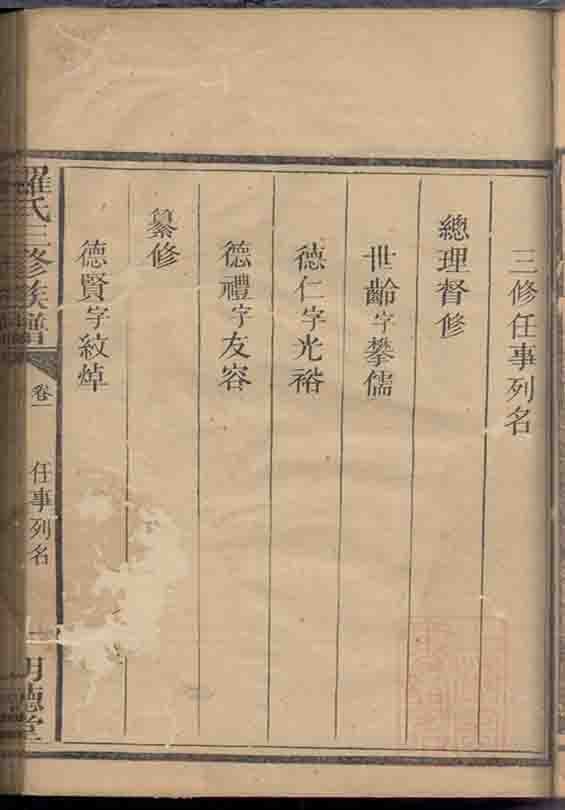 三修任事列名
總理督修
世齡字攀儒
德仁字光裕
德禮字友容
纂修
德賢字紋焯
羅氏三修族譜
卷一
任事列名
一
明德堂